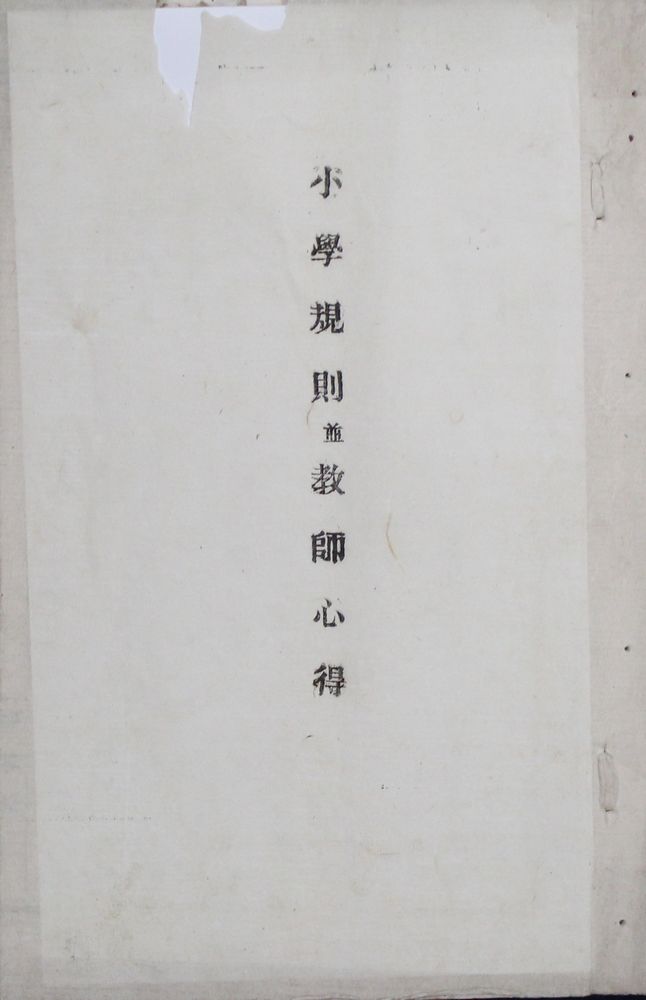 小學規則並教師心得